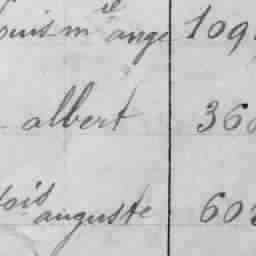 ouis m el ange 109
albert 360
fois auguste 603